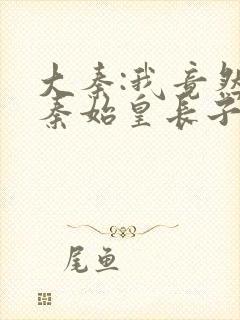 大秦:我竟然
秦始皇长子
尾鱼